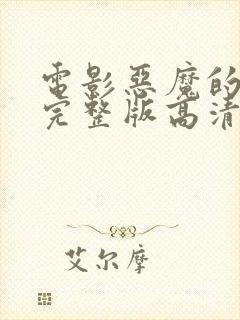 電影惡魔的
完整版高清
艾尔摩